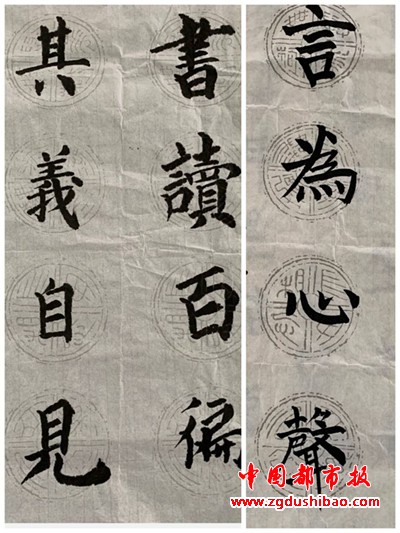 書讀百徧
其義自見
言為心聲
中国都市报
www.zgdushibao.com